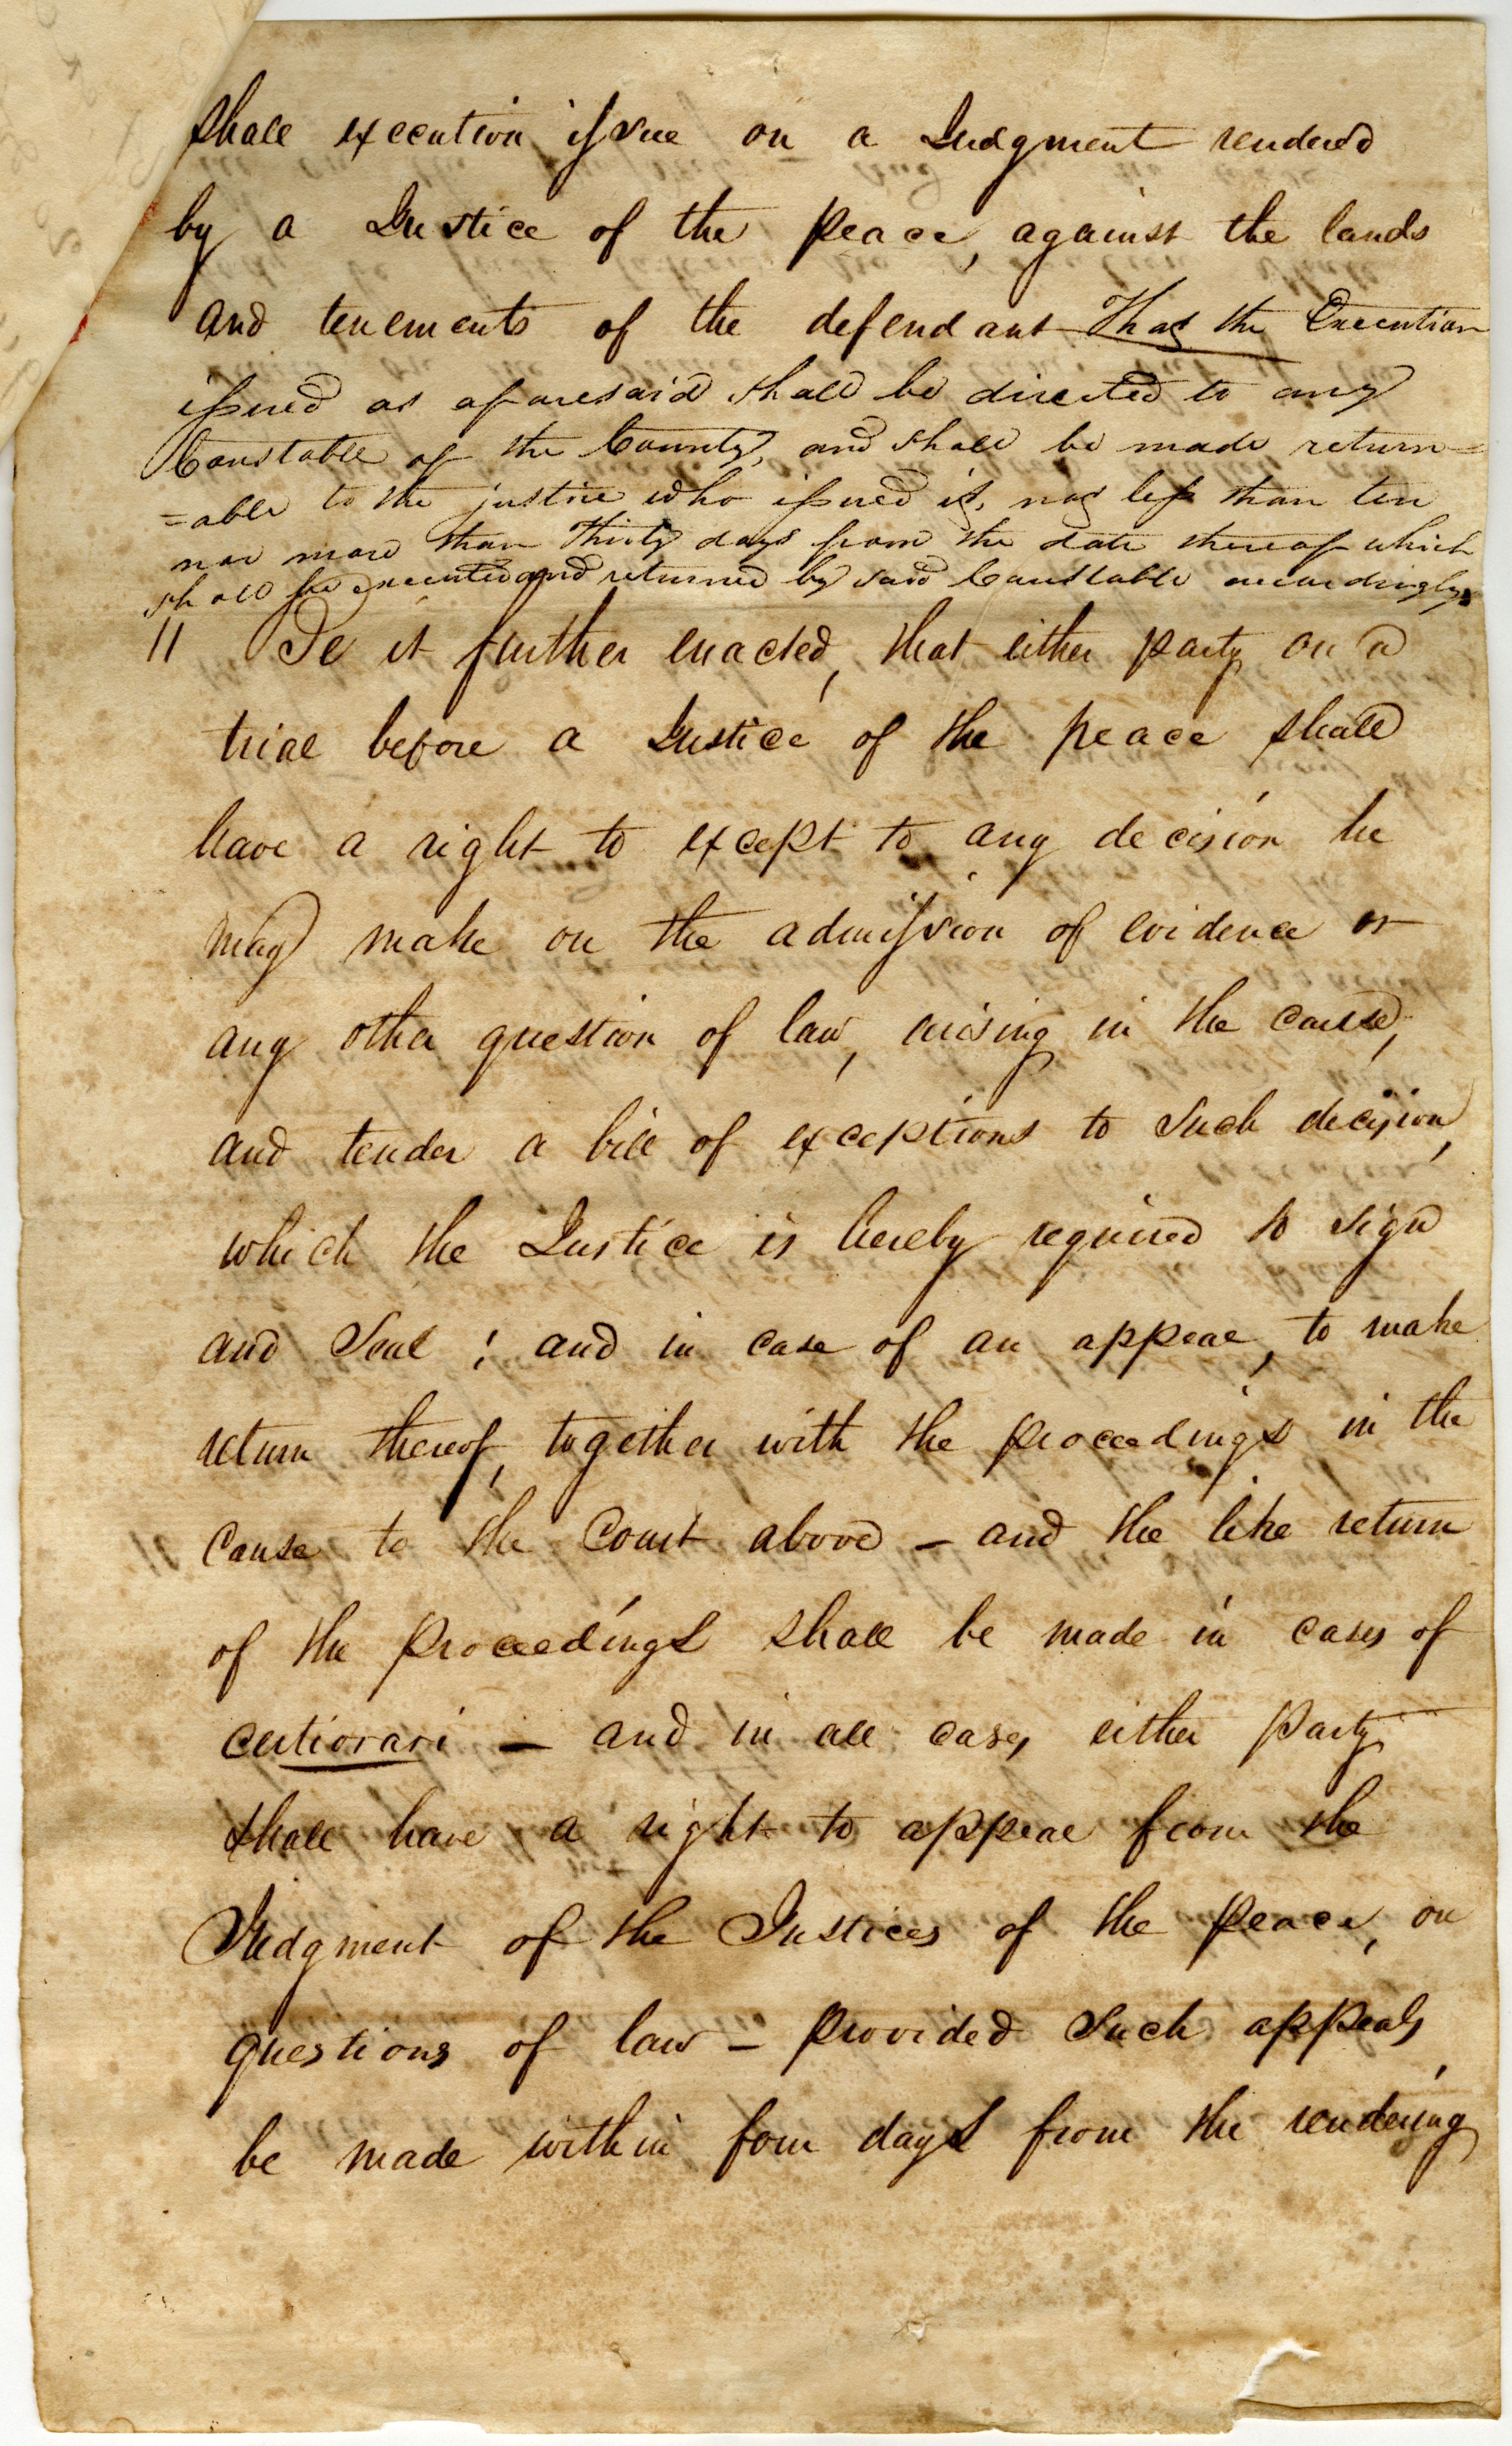 shall execution issue on a Judgment rendered
by a Justice of the peace, against the lands
and tenements of the defendant That the Execution
issued as aforesaid shall be directed to any
Constable of the County, and shall be made return=
=able to the justice who issued it, not less than ten
nor more than Thirty days from the date thereof which
shall be executed and returned by said Constable accordingly.
11 Be it further enacted, that either party on a
trial before a Justice of the peace shall
have a right to except to any decision he
may make on the admission of evidence or
any other question of law, arising in the cause,
and tender a bill of exceptions to such decision,
which the Justice is hereby required to sign
and Seal ; and in case of an appeal, to make
return thereof, together with the proceedings in the
Cause to the Court above – and the like return
of the proceedings shall be made in cases of
certiorari – and in all cases either Party
shall have a right to appeal from the
Judgment of the Justices of the peace, on
questions of law – provided such appeals,
be made within four days from the rendering